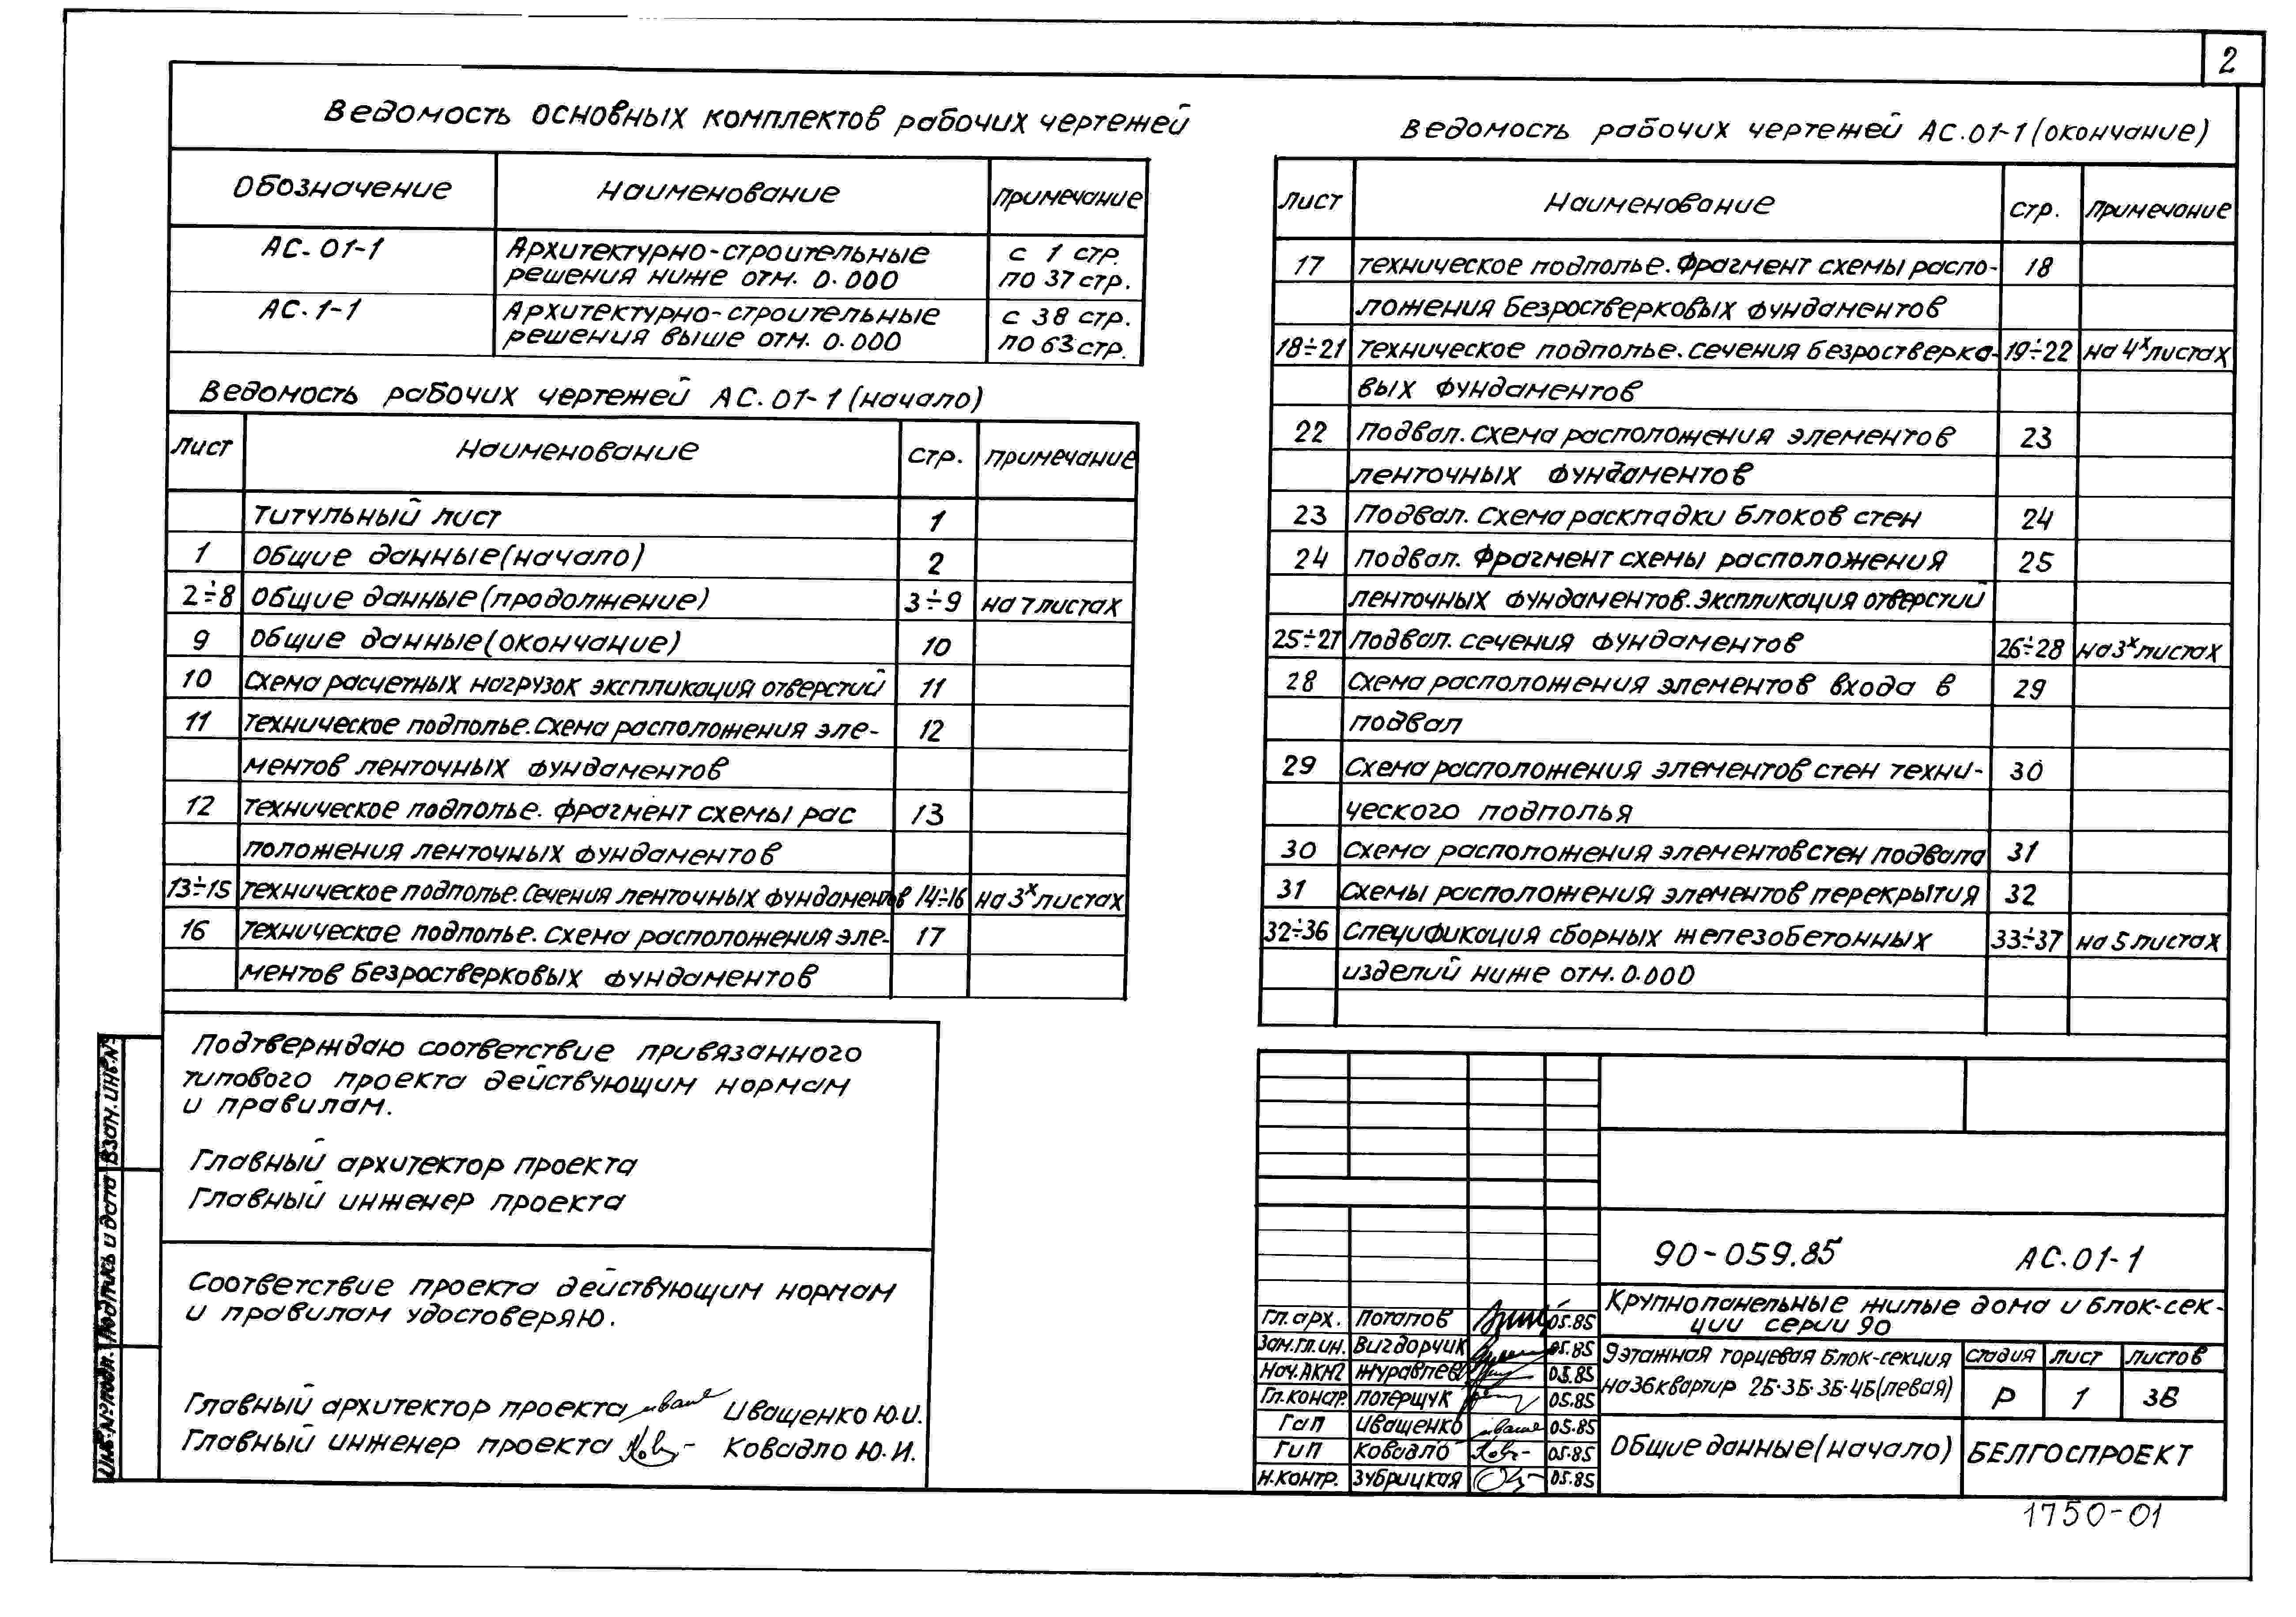 2
Ведомость основных комплектов рабочих чертежей
Обозначение Наименование Примечание
АС. 01-1 Архитектурно-строительные решения ниже отм. 0.000 с 1 стр. по 37 стр.
АС. 1-1 Архитектурно-строительные решения выше отм. 0.000 с 38 стр. по 63 стр.
Ведомость рабочих чертежей АС. 01-1 (начало)
Лист Наименование стр. примечание
Титульный лист 1
1 Общие данные (начало) 2
2÷8 Общие данные (продолжение) 3÷9 на 7 листах
9 Общие данные (окончание) 10
10 Схема расчетных нагрузок экспликация отверстий 11
11 Техническое подполье. Схема расположения эле- 12
ментов ленточных фундаментов
12 Техническое подполье. Фрагмент схемы рас 13
положения ленточных фундаментов
13÷15 Техническое подполье. Сечения ленточных фундаментов 14÷16 на 3х листах
16 Техническое подполье. Схема расположения эле- 17
ментов безростверковых фундаментов
Ведомость рабочих чертежей АС.01-1 (окончание)
Лист Наименование стр. Примечание
17 Техническое подполье. Фрагмент схемы распо- 18
ложения безростверковых фундаментов
18÷21 Техническое подполье. Сечения безростверка- 19÷22 на 4х листах
вых фундаментов
22 Подвал. Схема расположения элементов 23
ленточных фундаментов
23 Подвал. Схема раскладки блоков стен 24
24 Подвал. Фрагмент схемы расположения 25
ленточных фундаментов. Экспликация отверстий
25÷27 Подвал. Сечения фундаментов 26÷28 на 3х листах
28 Схема расположения элементов входа в 29
подвал
29 Схема расположения элементов стен техни- 30
ческого подполья
30 Схема расположения элементов стен подвала 31
31 Схемы расположения элементов перекрытия 32
32÷36 Спецификация сборных железобетонных 33÷37 на 5 листах
изделий ниже отм. 0.000
Подтверждаю соответствие привязанного
типового проекта действующим нормам
и правилам.
Главный архитектор проекта
Главный инженер проекта
Соответствие проекта действующим нормам
и правилам удостоверяю.
Главный архитектор проекта Иващенко Ю.И.
Главный инженер проекта Ковадло Ю.И.
Взам.инв.№
Подпись и дата
Инв.№подл.
90-059.85 АС.01-1
Крупнопанельные жилые дома и блок-сек-
ции серии 90
Гл.арх. Потапов 05.85
Зам.гл.ин. Вигдорчик 05.85
Нач.АКМ2 Журавлев 05.85
Гл.констр. Потерщук 05.85
ГАП Иващенко 05.85
ГИП Ковадло 05.85
Н.контр. Зубрицкая 05.85
9этажная торцевая блок-секция
на 36 квартир 2Б-3Б-3Б-4Б (левая)
Стадия Лист Листов
Р 1 36
Общие данные (начало)
БЕЛГОСПРОЕКТ
1750-01